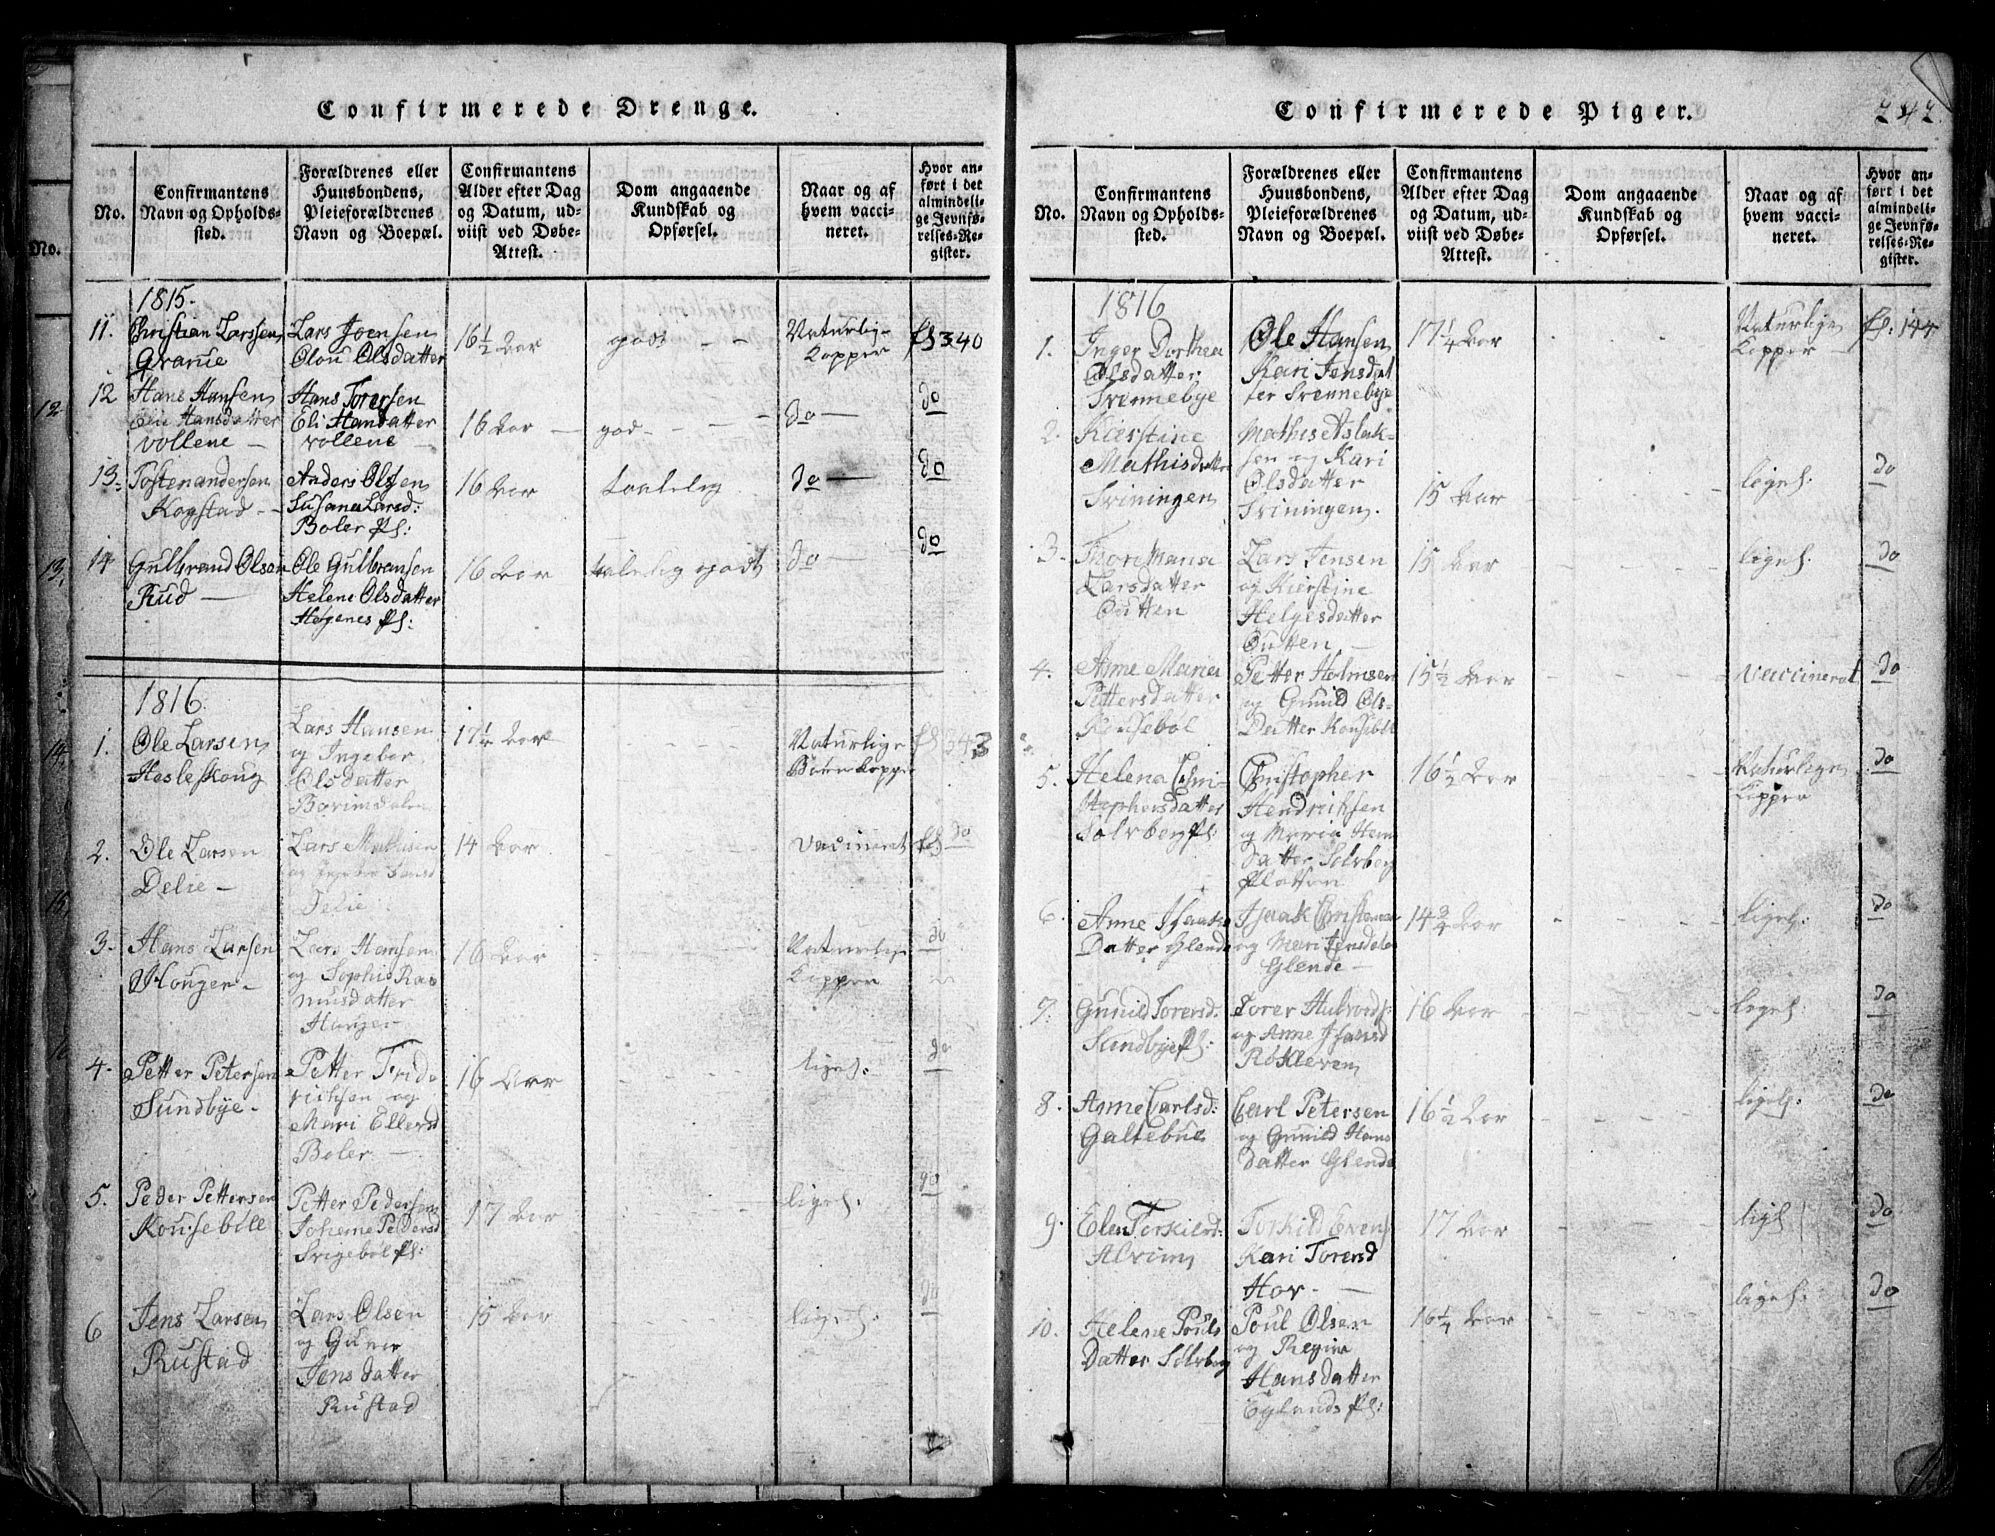 Confirmerede Drenge.
No.
Confirmantens Navn og Opholds-sted.
Forældrenes eller Huusbondens, Pleieforældrenes Navn og Boepæl.
Confirmantens Alder efter Dag og Datum, ud-viist ved Døbe-Attest.
Dom angaaende Kundskab og Opførsel.
Naar og af hvem vacci-neret.
Hvor an-ført i det almindeli-ge Jevnfø-relses-Re-gister.
1815.
11. Christian Larssen Granue
Lars Joensen Olou Olsdatter
16 1/2 Aar
godt
Naturlig Kopper
fl 340
12 Hans Hansen Elie Hansdatter Vollene
Hans Torersen Eli Hansdatter Vollene
16 Aar
god
do
do
13. Tosten andersen Kogstad
Anders Olsen Susana Larsd: Boler Pl:
16 Aar
taalelig
do
do
14 Gulbrand Olsen Rud
Ole Gulbransen Helene Olsdatter Høgenes Pl:
16 Aar
talelig godt
do
do
1816.
1. Ole Larsen Hesleskoug
Lars Hansen og Ingebor Olsdatter
17 1/4 Aar
Naturlige Børnekopper
343
2. Ole Larsen Delie
Lars Mathisen og Delie
14 Aar
Vacineret
do
3. Hans Larsen Houger
Lars Hansen og Sophie Rasmusdatter Houger
16 Aar
Naturlig Kopper
do
4. Petter Petersen Sundbye
Petter Friderichsen og Mari Ellersd Boler
16 Aar
ligel:
do
5. Peder Pettersen Kousebøll
Petter Pedersen Johanne Pedersd Svigebøl Pl:
17 Aar
ligel:
do
6 Jens Larsen Rustad
Lars Olsen og Gunor Jensdatter Rustad
15 Aar
ligel:
do
Confirmerede Piger.
242.
No.
Confirmantens Navn og Opholds-sted.
Forældrenes eller Huusbondens, Pleieforældrenes Navn og Boepæl.
Confirmantens Alder efter Dag og Datum, ud-viist ved Døbe-Attest.
Dom angaaende Kundskab og Opførsel.
Naar og af hvem vacci-neret.
Hvor an-ført i det almindeli-ge Jevnfø-relses-Re-gister.
1816
1. Inger Dorthea Olsdatter Svennebye
Ole Hansen Kari Jensdatter Svennebye
17 1/4 Aar
Naturlige Kopper
fl: 144
2. Kierstine Mathisdatter Sviningen
Mathis Aslaksen og Kari Olsdatter Sviningen.
15 Aar
ligel.
do
3. Thori Maria Larsdatter Outten
Lars Jensen og Kierstine Helgesdatter Outten
15 Aar
ligel.
do
4. Anne Maria Pettersdatter Kousebøl
Petter Holmsen og Gunild Olsdatter Kousebøl
15 1/2 Aar
Vaccineret
do
5. Helena Christophersdatter Solvberg Pl:
Christopher Hendrichsen og Maria Hansdatter Solvberg Platsen
16 1/2 Aar
Naturlige Kopper
do
6. Anne Isaaksdatter Glende
Isaak Christensen og Mari Jensdatter Glende
14 3/4 Aar
ligel.
do
7. Gunild Torersd. Sundbye Pl:
Torer Halvords: og Anne Røskleven
16 Aar
ligel.
do
8. Anne Carlsd: Galtebue
Carl Petersen og Gunild Hansdatter Glende
16 1/2 Aar
ligel.
do
9. Elen Torkildsd: Alvim
Torkild Evens Kari Torersd Hov
17 Aar
ligel
do
10. Helene Poulsdatter Solvberg
Poul Olsen og Regine Hansdatter Eglands Pl:
16 1/4 Aar
ligel.
do
No.
12
13.
14.
15.